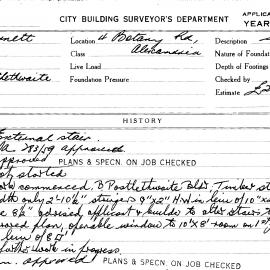 CITY BUILDING SURVEYOR'S DEPARTMENT APPLICA
YEAR
nett Location 4 Botany Rd, Descriptio
Class Alexandria Nature of Foundat
Live Load Depth of Footings
lethwaite Foundation Pressure Checked by
Estimate £2
HISTORY
External stair.
293/59 approved
approved PLANS & SPECN. ON JOB CHECKED
not started
work commenced. B Postlethwaite Bldr. Timber st
width only 2'-10½" stringers 9"x2" H.W in lieu of 10"x
8½" advised applicant & builder to alter stairs to
approved plan, openable window to 10'x8' room on 1st
in lieu of 8'
work in progress.
PLANS & SPECN. ON JOB CHECKED